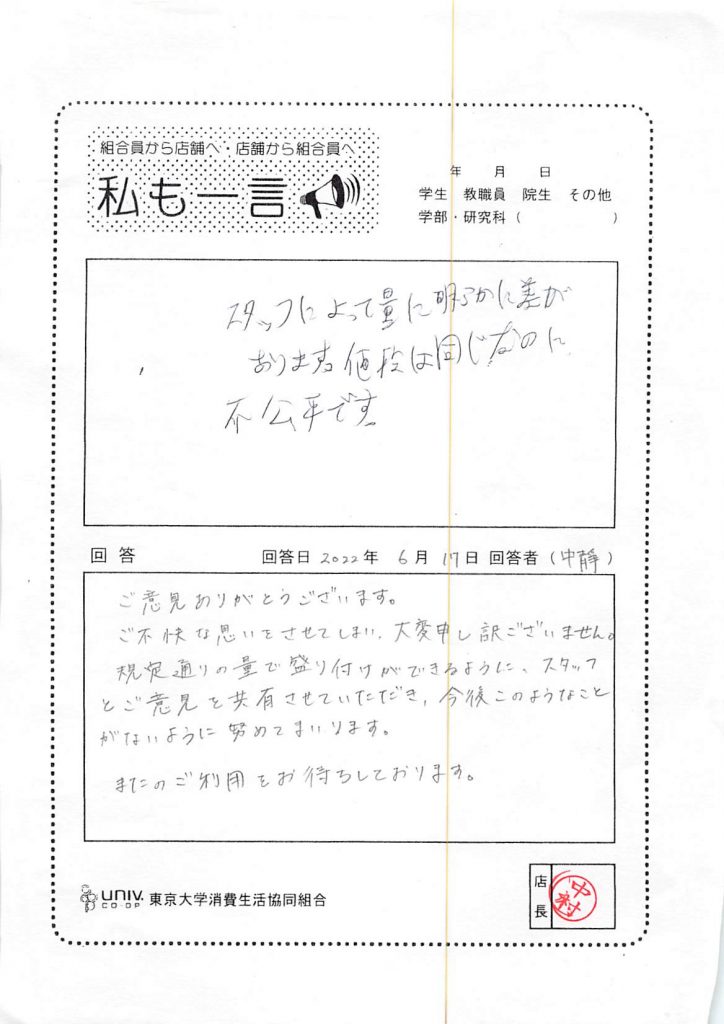 組合員から店舗へ・店舗から組合員へ
私も一言
年 月 日
学生 教職員 院生 その他
学部・研究科（ ）
スタッフによって量に明らかに差が
あります。値段は同じなのに
不公平です。
回答 回答日 2022年 6月 17日 回答者（中静）
ご意見ありがとうございます。
ご不快な思いをさせてしまい、大変申し訳ございません。
規定通りの量で盛り付けができるように、スタッフ
とご意見を共有させていただき、今後このようなこと
がないように努めてまいります。
またのご利用をお待ちしております。
UNIV.
CO-OP
東京大学消費生活協同組合
店長
中村